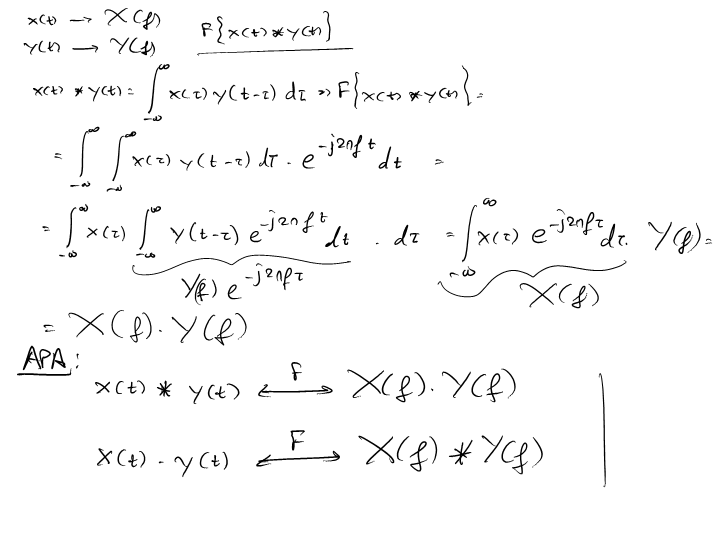 x(t) → X(f)
F{x(t)*y(t)}
y(t) → Y(f)
x(t) * y(t) = ∫_{-∞}^{∞} x(τ) y(t-τ) dτ ⇒ F{x(t) * y(t)} =
= ∫_{-∞}^{∞} ∫_{-∞}^{∞} x(τ) y(t-τ) dτ · e^{-j2πft} dt =
= ∫_{-∞}^{∞} x(τ) ∫_{-∞}^{∞} y(t-τ) e^{-j2πft} dt · dτ = ∫_{-∞}^{∞} x(τ) e^{-j2πfτ} dτ · Y(f) =
Y(f) e^{-j2πfτ} X(f)
= X(f) · Y(f)
ΑΡΑ:
x(t) * y(t) ⟷^{F} X(f) · Y(f)
x(t) · y(t) ⟷^{F} X(f) * Y(f)